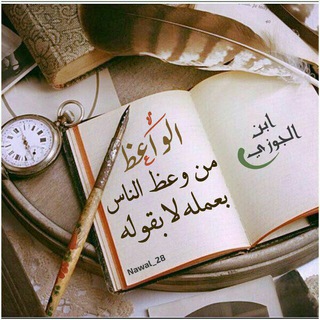 الواعظ
من وعظ الناس
بعمله لا بقوله
ابن
الجوزي
Nawal_28